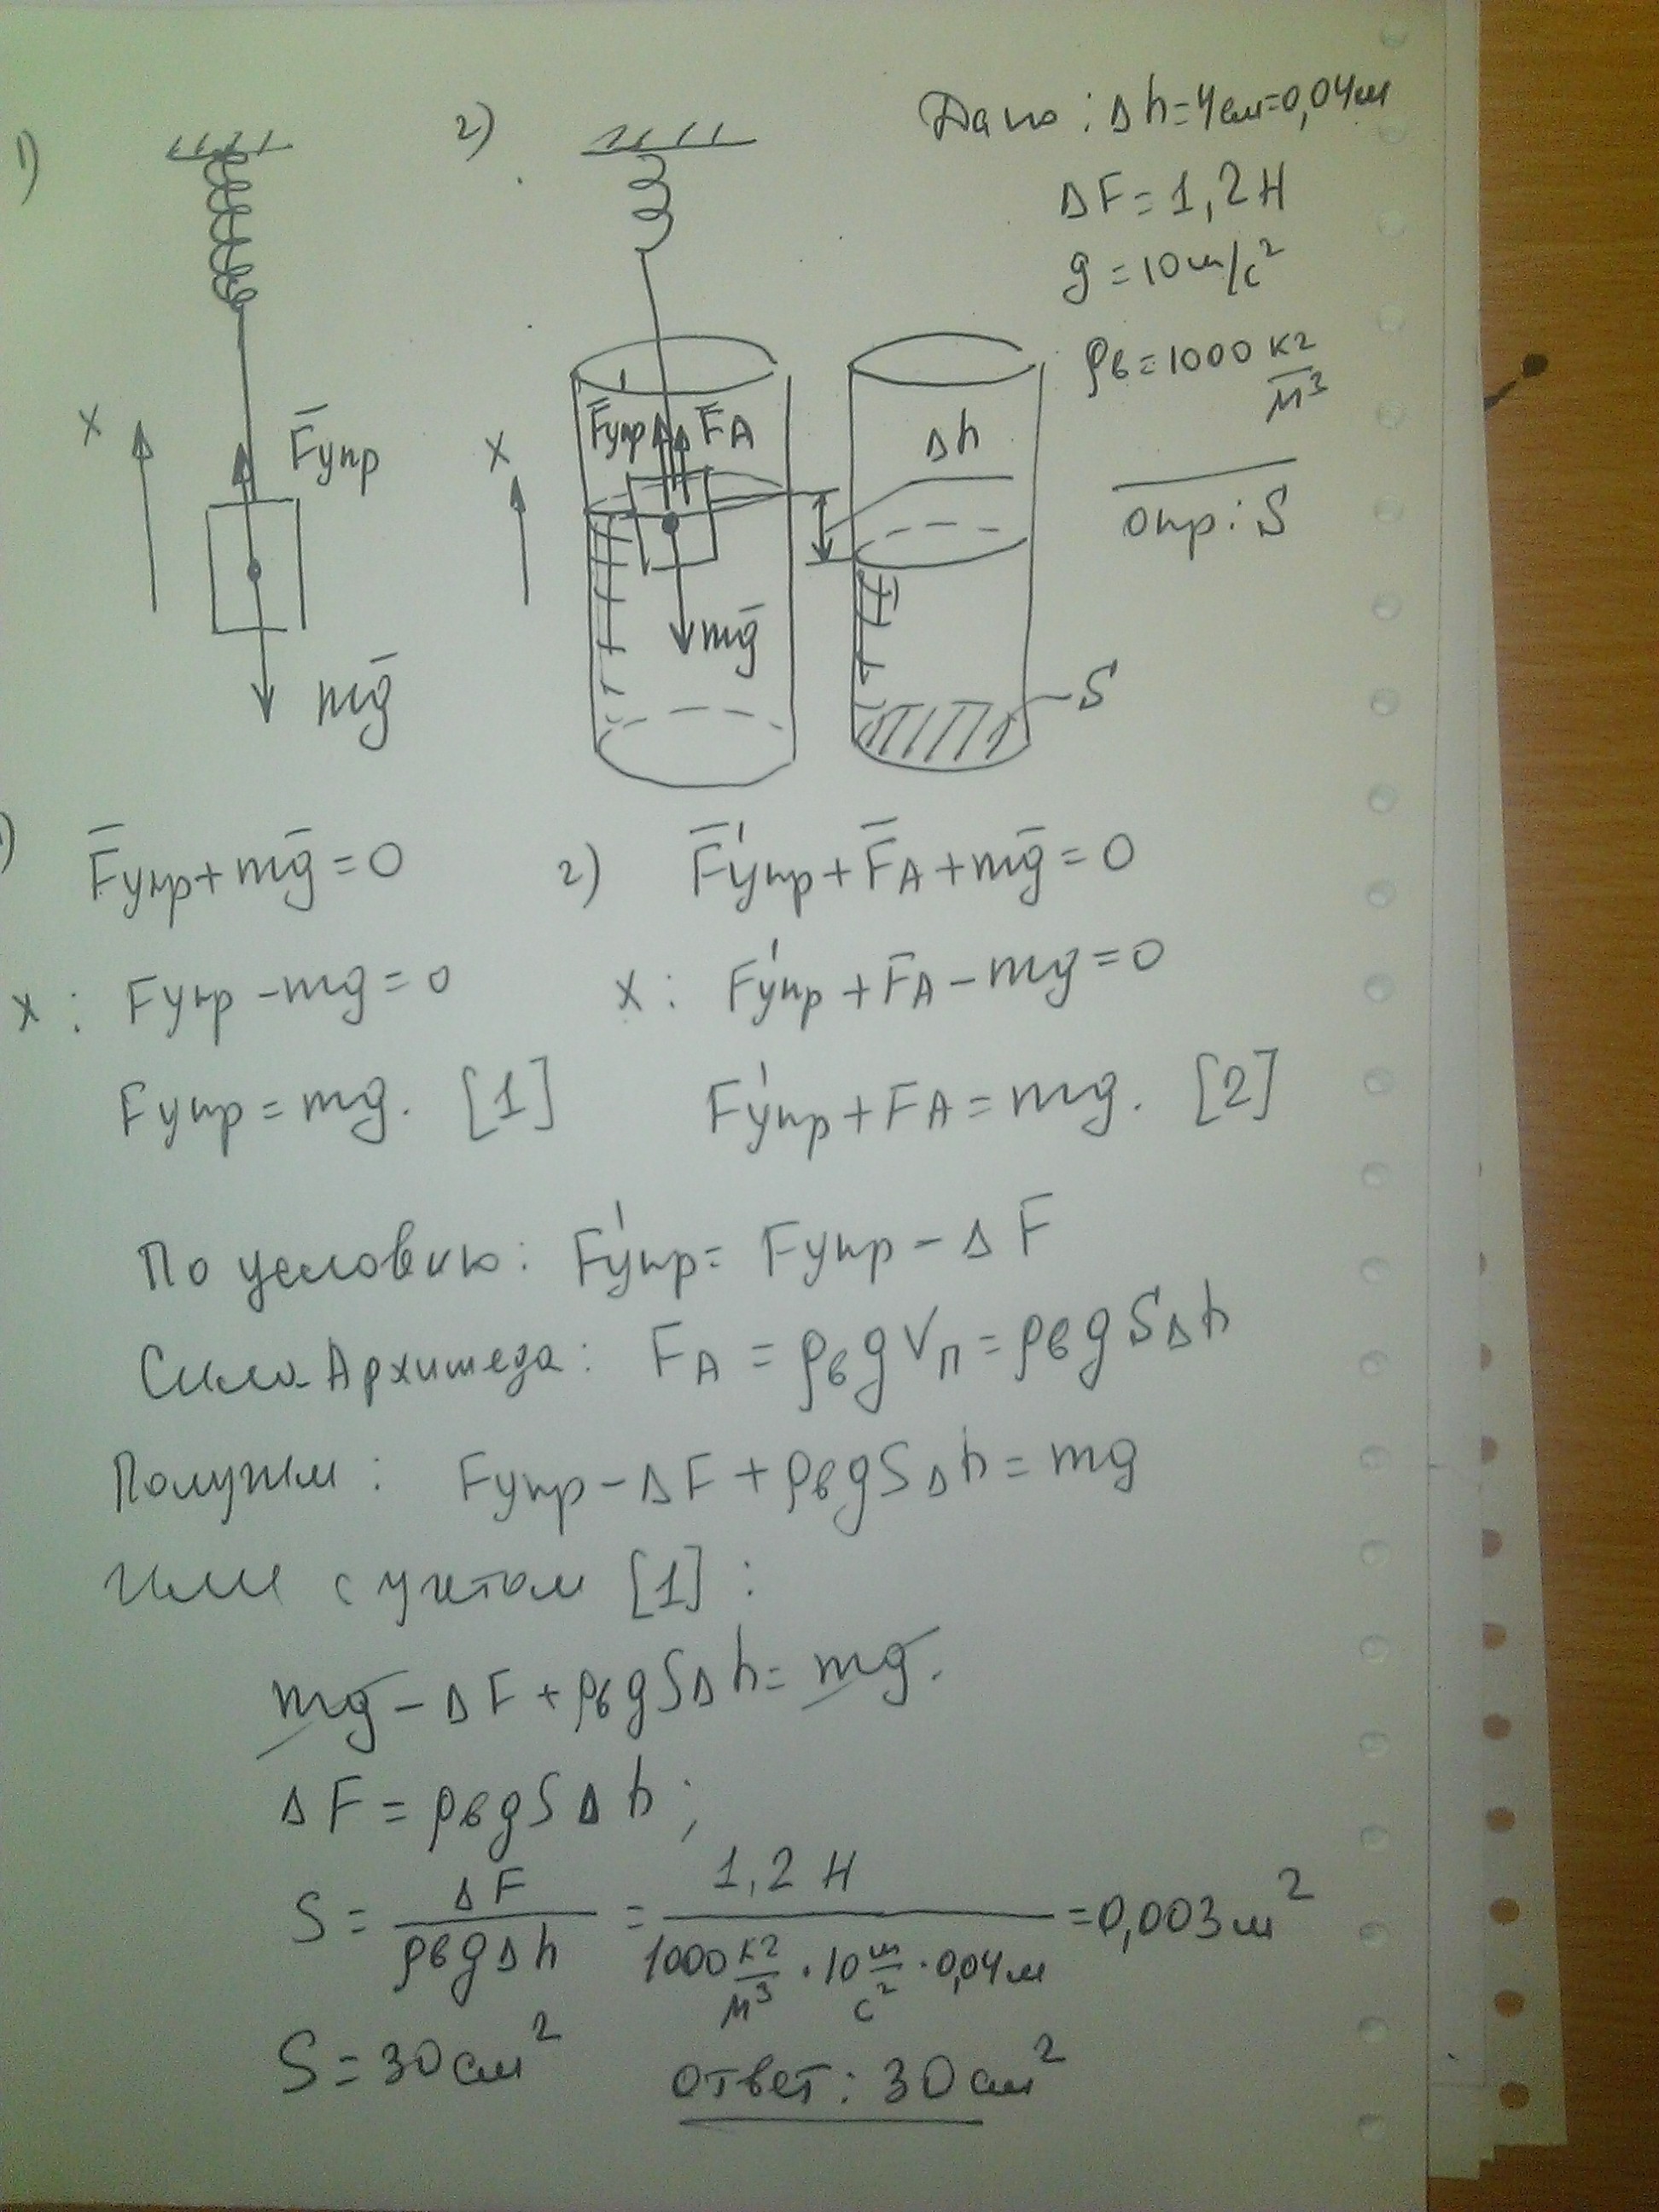 1)
2)
Дано: Δh=4см=0,04м
ΔF=1,2Н
g=10м/с²
ρв=1000 кг/м³
опр: S
x
F̄упр
mḡ
x
F̄упр F̄А
mḡ
Δh
S
1) F̄упр+mḡ=0
2) F̄'упр+F̄А+mḡ=0
x: Fупр-mg=0
x: F'упр+FА-mg=0
Fупр=mg. [1]
F'упр+FА=mg. [2]
По условию: F'упр=Fупр-ΔF
Сила Архимеда: FА=ρвgVп=ρвgSΔh
Получим: Fупр-ΔF+ρвgSΔh=mg
Или с учетом [1]:
mg-ΔF+ρвgSΔh=mg.
ΔF=ρвgSΔh;
S=ΔF/ρвgΔh=1,2Н/1000 кг/м³·10 м/с²·0,04м=0,003м²
S=30см² ответ: 30см²